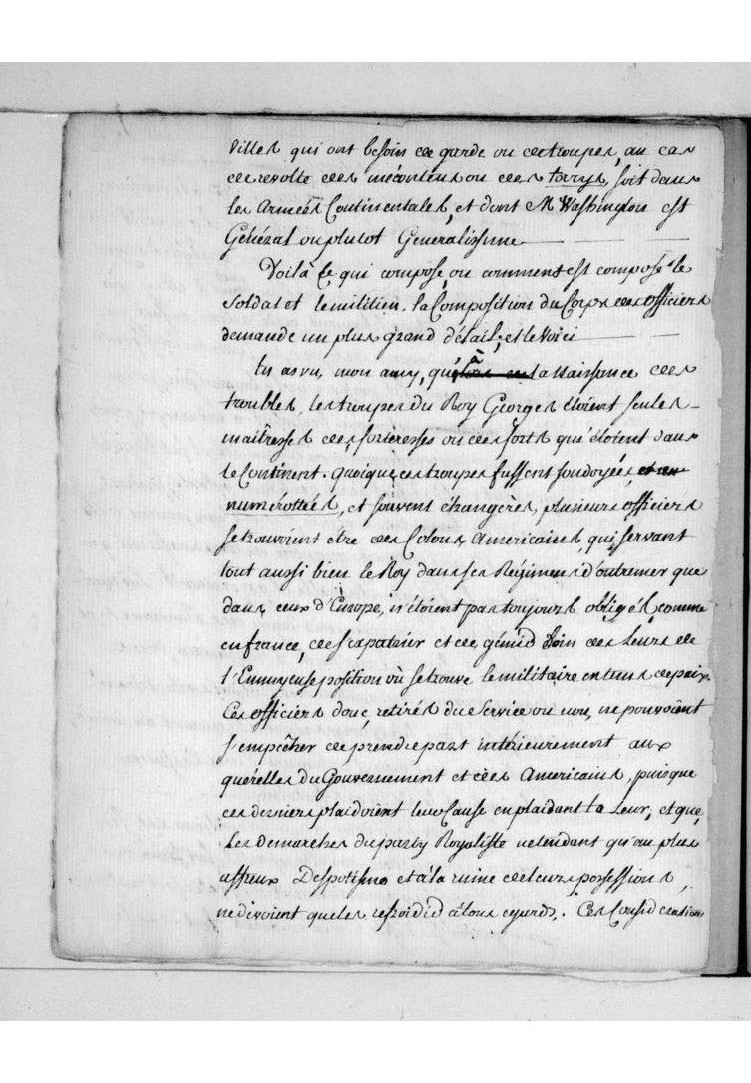 villes qui ont besoin de garde ou de troupes, au cas
de revolte des mécontens ou des torrys, soit dans
les Armées Continentales, et dont M. Washington est
Général ou plutot Generalissime
Voilà ce qui compose, ou comment est composé le
soldat et le milicien. la Composition du Corps des officiers
demande un plus grand détail; et le voici
tu as vu, mon amy, qu'à la Naissance des
troubles, les troupes du Roy Georges étoient seules
maîtresses des forteresses ou des forts qui étoient dans
le Continent. quoique ces troupes fussent soudoyées,
numérottées, et souvent étrangères, plusieurs officiers
se trouvoient être des Colons Américains, qui servant
tout aussi bien le Roy dans ses Régimens d'outremer que
dans ceux d'Europe, n'étoient pas toujours obligés, comme
en france, de s'expatrier et de gémir loin des Leurs de
l'Ennuyeuse position où se trouve le militaire en tems de paix.
Ces officiers donc, retirés du Service ou non, ne pouvoient
s'empêcher de prendre part intérieurement aux
querelles du Gouvernement et des Américains, puisque
ces derniers plaidoient leur Cause en plaidant la Leur, et que
les demarches du party Royaliste ne tendant qu'au plus
affreux Despotisme et à la ruine de leurs possessions,
ne devoient que les refroidir à tous égards. Ces Considérations